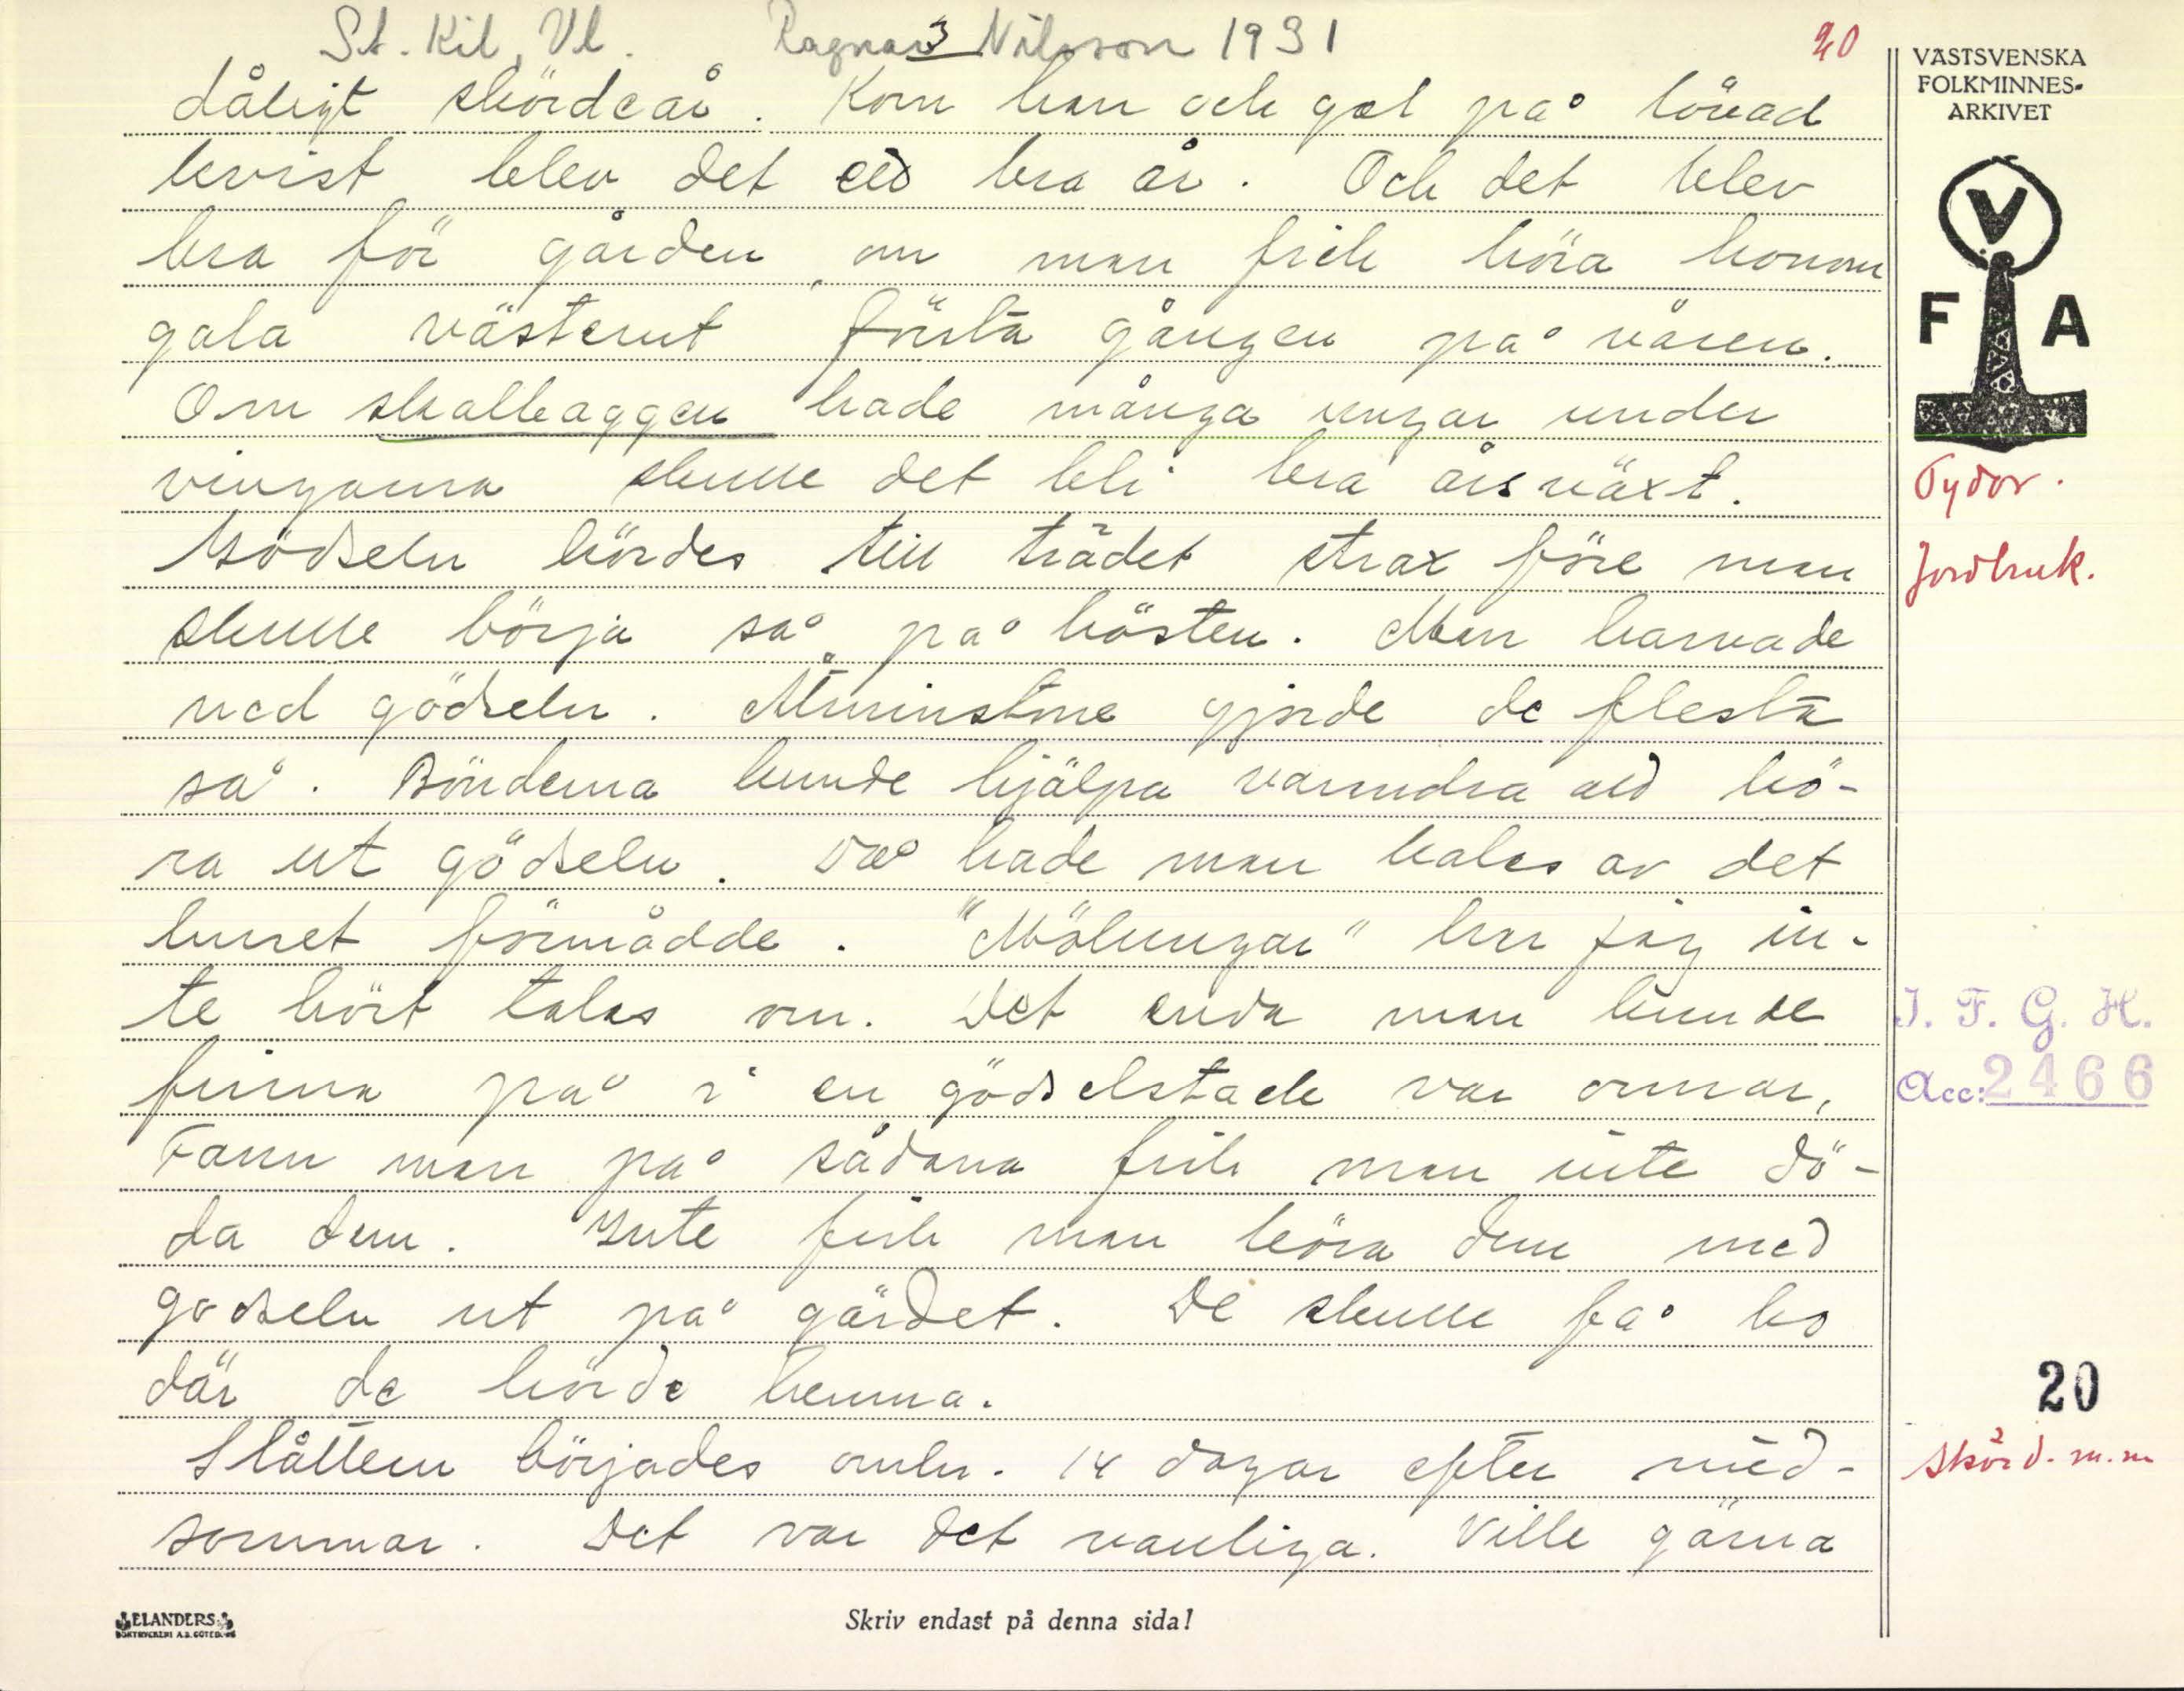 St. Kil, Vl. Ragnar Nilsson 1931
3
20
VÄSTSVENSKA
FOLKMINNES-
ARKIVET
V
F A
dåligt skördeår. Kom han och gol på lövad
kvist blev det ett bra år. Och det blev
bra för gården om man fick höra honom
gala västerut första gången på våren.
Om skalbaggen hade många ungar under
vingarna skulle det bli bra årsväxt.
Tydor.
Gödseln kördes till trädet strax före man
Jordbruk.
skulle börja så på hösten. Man harvade
ned gödseln. Åtminstone gjorde de flesta
så. Bönderna kunde hjälpa varandra att kö-
ra ut gödseln. Då hade man kalas av det
huset förmådde. "Mölungar" har jag in-
te hört talas om. Det enda man kunde
finna på i en gödselstack var ormar,
I. F. G. H.
Acc: 2466
Fann man på sådana fick man inte dö-
da dem. Inte fick man köra dem med
godseln ut på gärdet. De skulle få bo
där de hörde hemma.
20
Slåttern börjades omkr. 14 dagar efter mid-
skörd. m.m
sommar. Det var det vanliga. Ville gärna
ELANDERS
BOKTRYCKERI A.B. GÖTEBORG
Skriv endast på denna sida!